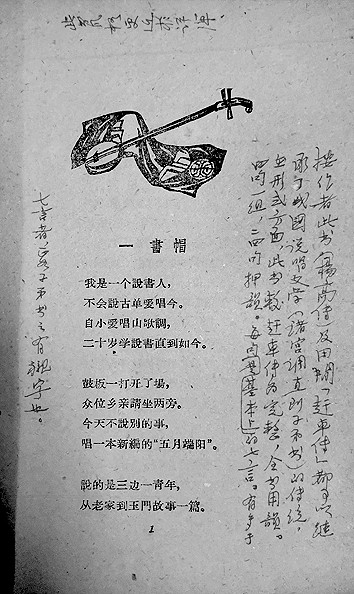 一 書帽
我是一个說書人，
不会說古单爱唱今。
自小爱唱山歌調，
二十岁学說書直到如今。
鼓板一打开了場，
众位乡亲請坐两旁。
今天不說別的事，
唱一本新編的“五月端阳”。
說的是三边一青年，
从老家到玉門故事一篇。
1
按作者此书（楊高传）及田間「赶車传」都可以继
承了我國説唱文学（诸宫调直到子弟书）的传统，
在形式方面，此书較赶車传为完整，全书用韵。
四句一组，二四句押韵。每句是基本上的七言。有多于
七言者，子弟书之有衬字也。